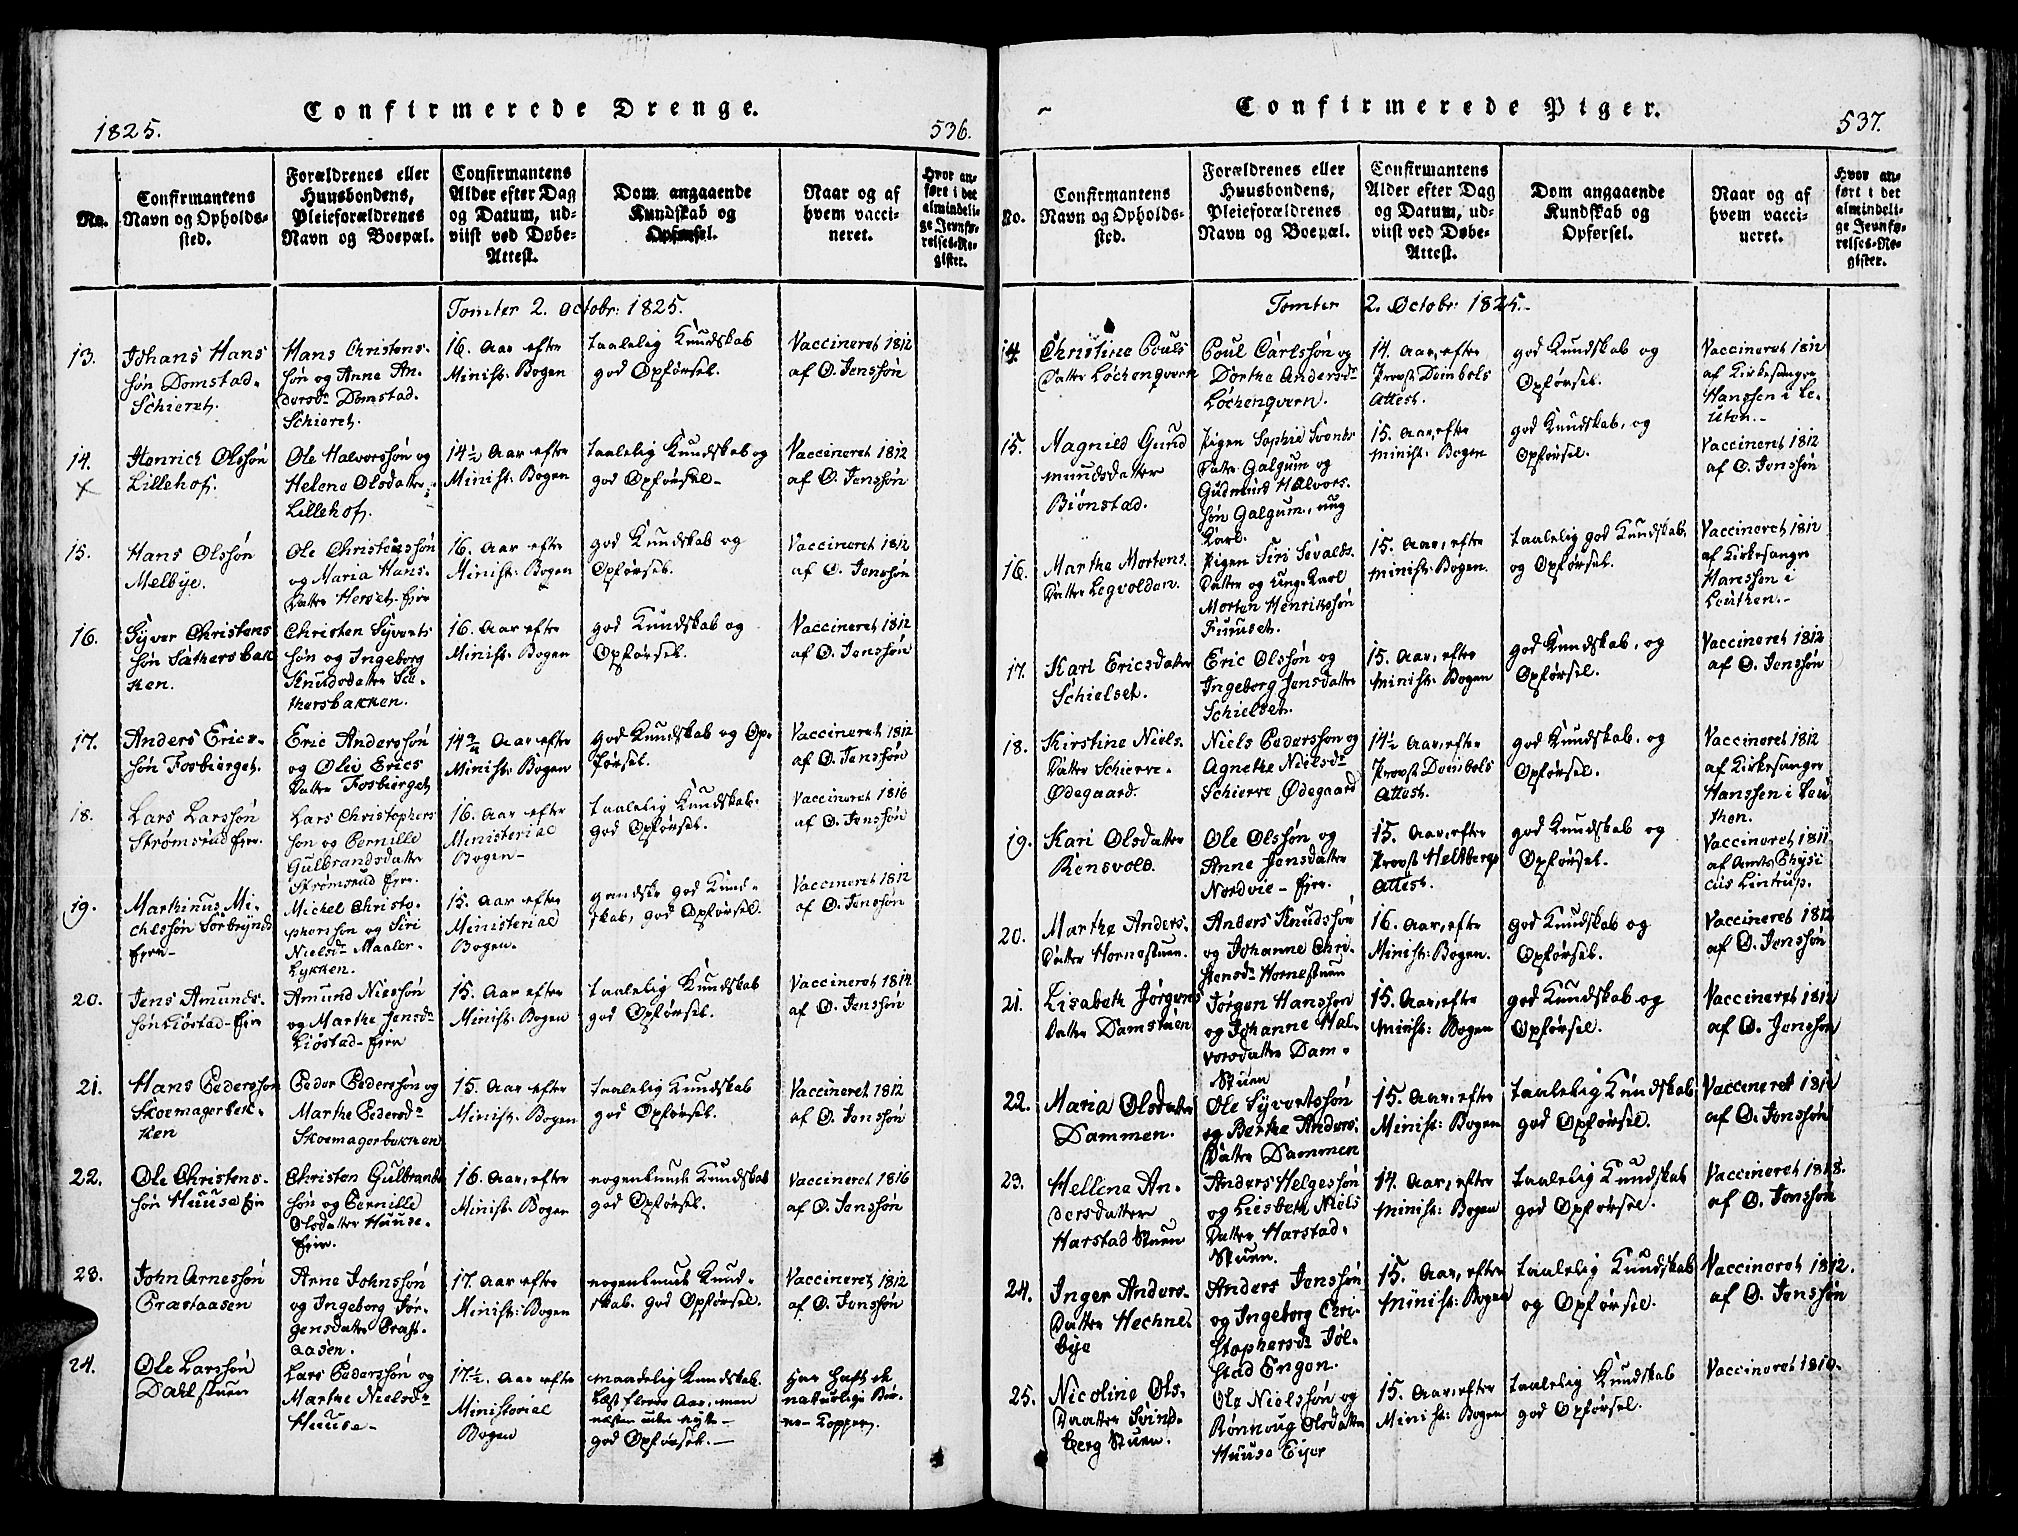 Confirmerede Drenge.
1825.
536.
No.
Confirmantens
Navn og Opholds-
sted.
Forældrenes eller
Huusbondens,
Pleieforældrenes
Navn og Boepæl.
Confirmantens
Alder efter Dag
og Datum, ud-
viist ved Døbe-
Attest.
Dom angaaende
Kundskab og
Opførsel.
Naar og af
hvem vacci-
neret.
Hvor an-
ført i det
almindeli-
ge Jevnfø-
relses-Re-
gister.
Tomter 2. Octobr: 1825.
13.
Johans Hans
søn Domstad-
Schieret.
Hans Christens-
søn og Anne An-
dersdr Domstad-
Schieret.
16. Aar efter
Minist: Bogen
taalelig Kundskab
god Opførsel.
Vaccineret 1812
af O. Jenssøn
14.
Henrich Olssøn
Lillehof.
Ole Halvorssøn og
Helene Olsdatter
Lillehof.
14½ Aar efter
Minist: Bogen
taalelig Kundskab og
god Opførsel-
Vaccineret 1812
af O. Jenssøn
15.
Hans Olssøn
Melbye.
Ole Christenssøn
og Maria Hans-
Datter Herset-Eier
16. Aar efter
Minist: Bogen
god Kundskab og
Opførsel.
Vaccineret 1812
af O. Jenssøn
16.
Syver Christens
søn Sæthersbak
ken.
Christen Syverts
søn og Ingeborg
Knudsdatter Sæ-
thersbakken.
16. Aar efter
Minist: Bogen
god Kundskab og
Opførsel.
Vaccineret 1812
af O. Jenssøn
17.
Anders Erics-
søn Fosbierget.
Eric Anderssøn
og Olev Erics
Datter Fosbierget
14¾ Aar efter
Minist: Bogen
god Kundskab og Op-
førsel.
Vaccineret 1812
af O. Jenssøn
18.
Lars Larssøn
Strømsrud Eier.
Lars Christophers
søn og Pernille
Gulbrandsdatter
Strømsrud Eier.
16. Aar efter
Ministerial
Bogen-
taalelig Kundskab-
god Opførsel.
Vaccineret 1816
af O. Jenssøn
19.
Marthinus Mi-
chelssøn
Eier-
Michel Christo-
pherssøn og Siri
Nielsdr Maaler-
Lykken.
15. Aar efter
Ministerial
Bogen.
gandske god Kund-
skab, god Opførsel.
Vaccineret 1812
af O. Jenssøn
20.
Jens Amunds-
søn Liøstad-Eier
Amund Nielssøn
og Marthe Jensdr
Liøstad-Eier
15. Aar efter
Minist: Bogen
taalelig Kundskab
god Opførsel.
Vaccineret 1814
af O. Jenssøn
21.
Hans Pederssøn
Skoemagerbek-
ken
Peder Pederssøn og
Marthe Pedersdr
Skoemagerbakken
15. Aar efter
Minist: Bogen
taalelig Kundskab
god Opførsel.
Vaccineret 1812
af O. Jenssøn
22.
Ole Christens-
søn Huuse Eier
Christen Gulbrands
søn og Pernille
Olsdatter Huuse-
Eier.
16. Aar, efter
Minist: Bogen
nogenlunde Kundskab
god Opførsel.
Vaccineret 1816
af O. Jenssøn
23.
John Arnessøn
Præstaasen
Arne Johnssøn
og Ingeborg Jør-
gensdatter Præst-
aasen.
17. Aar efter
Minist: Bogen
nogenlunde Kund-
skab. god Opførsel.
Vaccineret 1812
af O. Jenssøn
24.
Ole Larssøn
Dahlstuen
Lars Pederssøn og
Marthe Nielsdr
Huuse-
17½. Aar efter
Ministerial
Bogen
maadelig Kundskab.
Læst flere Aar, men
næsten uden nytte-
god Opførsel.-
Har haft de
naturlige Bør-
ne-Kopper,
Confirmerede Piger.
537.
No.
Confirmantens
Navn og Opholds-
sted.
Forældrenes eller
Huusbondens,
Pleieforældrenes
Navn og Boepæl.
Confirmantens
Alder efter Dag
og Datum, ud-
viist ved Døbe-
Attest.
Dom angaaende
Kundskab og
Opførsel.
Naar og af
hvem vacci-
neret.
Hvor an-
ført i det
almindeli-
ge Jevnfø-
relses-Re-
gister.
Tomter 2. Octobr: 1825.-
14.
Christine Pouls
Datter Løchenqvern
Poul Carlssøn og
Dorthe Andersdr
Løchenqvern.
14. Aar, efter
Provst Attest.
god Kundskab og
Opførsel.
Vaccineret 1812
af Kirkesanger
Hanssen i Lø-
uten.-
15.
Magnild Gund
mundsdatter
Biønstad.
Pigen Sophie Svents
Datter Galgum og
Gudmund Halvors-
søn Galgum, ung
Karl.
15. Aar, efter
Minist: Bogen
god Kundskab, og
Opførsel.
Vaccineret 1812
af O. Jenssøn
16.
Marthe Mortens
Datter Legvolden.
Pigen Siri Sevalds
Datter og unge Karl
Morten Henrikssøn
Furuset.
15. Aar, efter
Minist: Bogen.
taalelig god Kundskab,
og Opførsel.
Vaccineret 1812
af Kirkesanger
Hanssøn i
Leuthen.-
17.
Kari Ericsdatter
Schielset.
Eric Olssøn og
Ingeborg Jensdatter
Schielset.
15. Aar, efter
Minist: Bogen
god Kundskab, og
Opførsel.
Vaccineret 1812
af O. Jenssøn
18.
Kirstine Niels-
Datter Schierve-
Ødegaard.
Niels Pederssøn og
Agnethe Nielsdr
Schierve Ødegaard
14½ Aar, efter
Provst Attest.
god Kundskab, og
Opførsel.
Vaccineret 1812
af Kirkesanger
Hanssen i Leu
then.
19.
Kari Olsdatter
Rensvold.
Ole Olssøn og
Anne Jensdatter
Nordvie-Eier.
15. Aar, efter
Provst Heltbergs
Attest.
god Kundskab og
Opførsel.
Vaccineret 1811
af Amts Physi
cus Lintrup.
20.
Marthe Anders-
Datter Hornestuen.
Anders Knudssøn
og Johanne Chri-
stensdr Hornestuen
16. Aar, efter
Minist: Bogen.
god Kundskab og
Opførsel.
Vaccineret 1812
af O. Jenssøn
21.
Lisabeth Jørgens
Datter Damstuen
Jørgen Hanssøn
og Johanne Hal-
vorsdatter Dam-
Stuen
15. Aar, efter
Minist: Bogen
god Kundskab og
Opførsel.
Vaccineret 1812
af O. Jenssøn
22.
Maria Olsdatter
Dammen.
Ole Syvertssøn
og Berthe Anders-
Datter Dammen
15. Aar, efter
Minist: Bogen
taalelig Kundskab
god Opførsel.
Vaccineret 1812
af O. Jenssøn
23.
Helline An-
dersdatter
Harstad Stuen
Anders Helgessøn
og Liesbeth Niels
Datter Harstad-
Stuen.
14. Aar, efter
Minist: Bogen
taalelig Kundskab
god Opførsel.
Vaccineret 1818.
af O. Jenssøn
24.
Inger Anders-
Datter Hechnes
bye
Anders Jenssøn
og Ingeborg Chri-
stophersdr Jøl-
stad Engen.
15. Aar, efter
Minist: Bogen
taalelig Kundskab
og Opførsel.
Vaccineret 1812.
af O. Jenssøn
25.
Nicoline Ols-
Daatter Svind-
berg Stuen.
Ole Nielssøn og
Rønnoug Olsdatter
Huuse Eier
15. Aar, efter
Minist: Bogen
taalelig Kundskab
god Opførsel.
Vaccineret 1810.